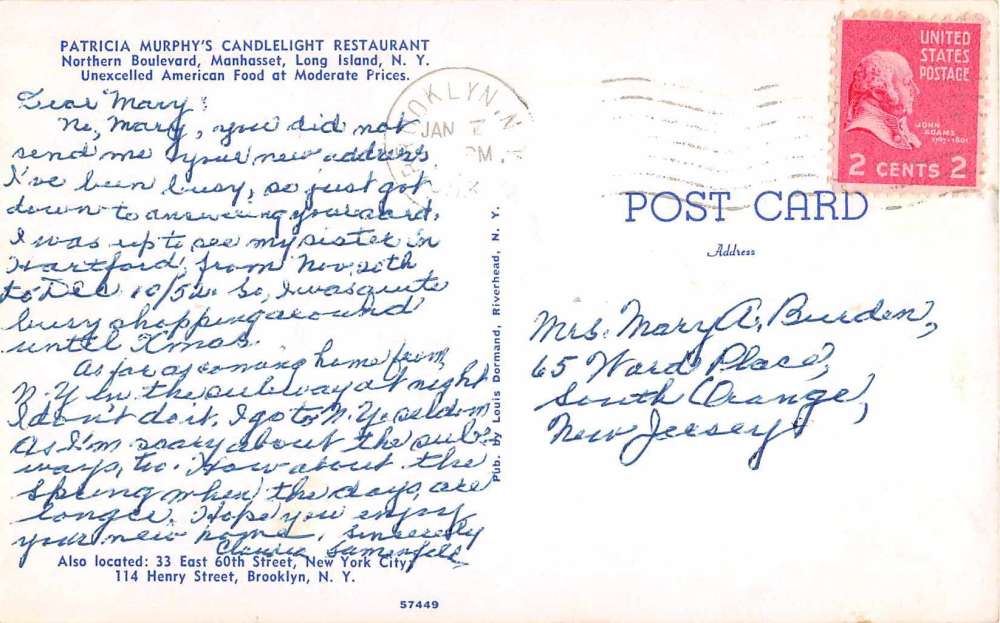 PATRICIA MURPHY'S CANDLELIGHT RESTAURANT
Northern Boulevard, Manhasset, Long Island, N. Y.
Unexcelled American Food at Moderate Prices.
Dear Mary:
No, Mary, you did not
send me your new address
I've been busy, so just got
down to answering your card.
I was up to see my sister in
Hartford, from Nov. 20th
to Dec 10/52. So, I was quite
busy shopping around
until Xmas.
As far as coming home from
N.Y. in the subway at night
I don't do it. I go to N.Y. seldom
as I'm scary about the sub-
ways, too. How about the
Spring when the days are
longer. Hope you enjoy
your new home. Sincerely
Also located: 33 East 60th Street, New York City,
114 Henry Street, Brooklyn, N. Y.
57449
Pub. by Louis Dormand, Riverhead, N. Y.
BROOKLYN, N
JAN
PM
UNITED
STATES
POSTAGE
JOHN
ADAMS
1797-1801
2 CENTS 2
POST CARD
Address
Mrs. Mary A. Burden,
65 Ward Place,
South Orange,
New Jersey